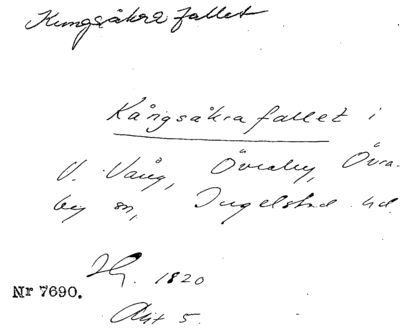 Kungsåkra fallet
Kårigsåkra fallet i
V. Vång, Övraby, Övra-
by sn, Ingelstad hd.
Hg. 1820
Nr 7690.
Akt 5.